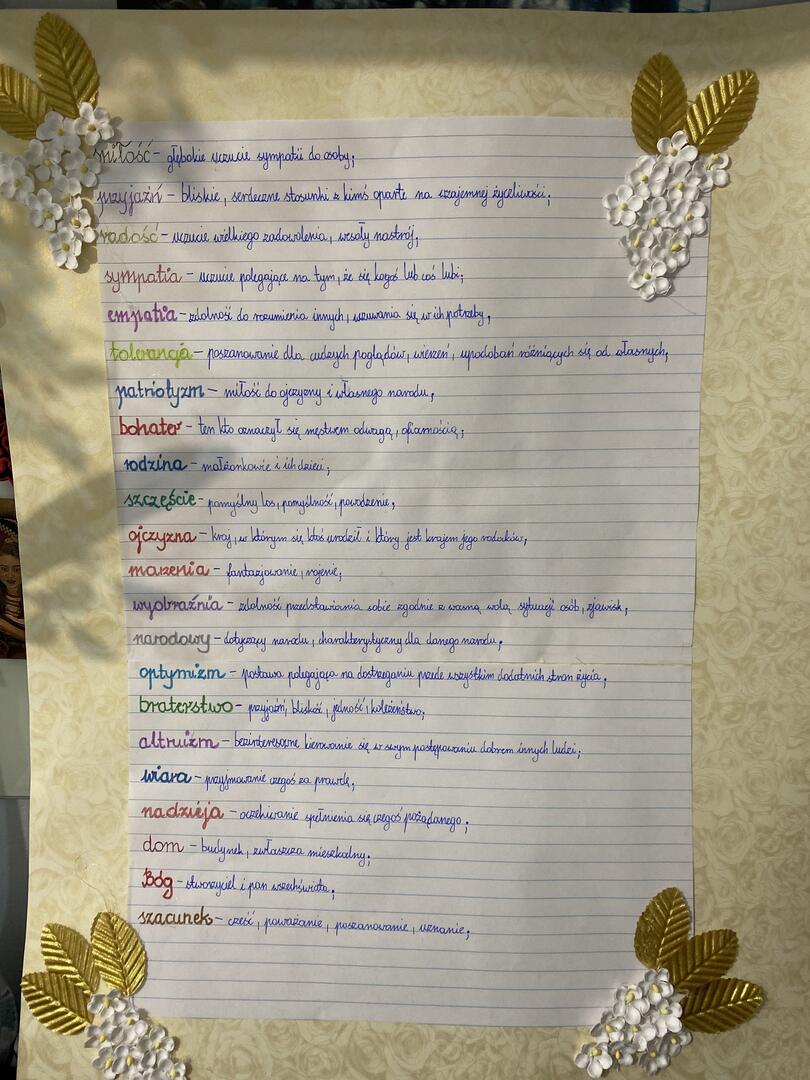 miłość - głębokie uczucie sympatii do osoby;
przyjaźń - bliskie, serdeczne stosunki z kimś oparte na wzajemnej życzliwości;
radość - uczucie wielkiego zadowolenia, wesoły nastrój;
sympatia - uczucie polegające na tym, że się kogoś lub coś lubi;
empatia - zdolność do rozumienia innych, wczuwania się w ich potrzeby;
tolerancja - poszanowanie dla cudzych poglądów, wierzeń, upodobań różniących się od własnych;
patriotyzm - miłość do ojczyzny i własnego narodu;
bohater - ten kto oznaczył się męstwem odwagą, ofiarnością;
rodzina - małżonkowie i ich dzieci;
szczęście - pomyślny los, pomyślność, powodzenie;
ojczyzna - kraj, w którym się ktoś urodził i który jest krajem jego rodaków;
marzenia - fantazjowanie, rojenie;
wyobraźnia - zdolność przedstawiania sobie zgodnie z wasną wolą sytuacji osób, zjawisk;
narodowy - dotyczący narodu, charakterystyczny dla danego narodu;
optymizm - postawa polegająca na dostrzeganiu przede wszystkim dodatnich stron życia;
braterstwo - przyjaźń, bliskość, jedność, koleżeństwo;
altruizm - bezinteresowne kierowanie się w swym postępowaniu dobrem innych ludzi;
wiara - przyjmowanie czegoś za prawdę;
nadzieja - oczekiwanie spełnienia się czegoś pożądanego;
dom - budynek, zwłaszcza mieszkalny;
Bóg - stworzyciel i pan wszechświata;
szacunek - cześć, poważanie, poszanowanie, uznanie;